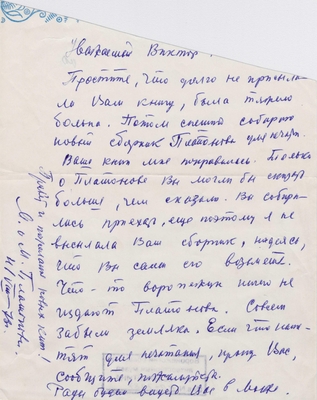 Уважаемый Виктор.
Простите, что долго не присыла-
ла Вам книгу, была тяжело
больна. Потом спешила собирать
новый сборник Платонова для печати.
Ваша книга мне понравилась. Только
о Платонове Вы могли бы сказать
больше, чем сказали. Вы собира-
лись приехать, еще поэтому я не
высылала Ваш сборник, надеясь,
что Вы сами его возьмете.
Что-то воронежцы ничего не
издают Платонова. Совсем
забыли земляка. Если что напе-
чатят для печатания, прошу Вас,
сообщите, пожалуйста.
Рады будем видеть Вас в Москве.
Привет и пожелания новых книг!
М. Платонова.